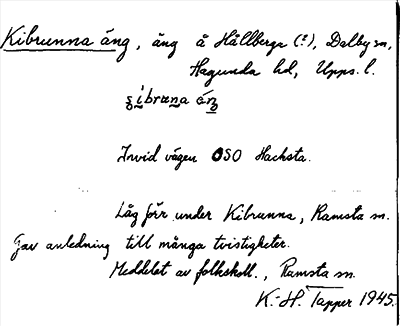 Kibrunna äng, äng å Hällberga (?), Dalby sn,
Hagunda hd, Upps. l.
Invid vägen OSO Hacksta.
Låg förr under Kibrunna, Ramsta sn.
Gav anledning till många tvistigheter.
Meddelat av folkskoll., Ramsta sn
K.-H. Tapper 1945.